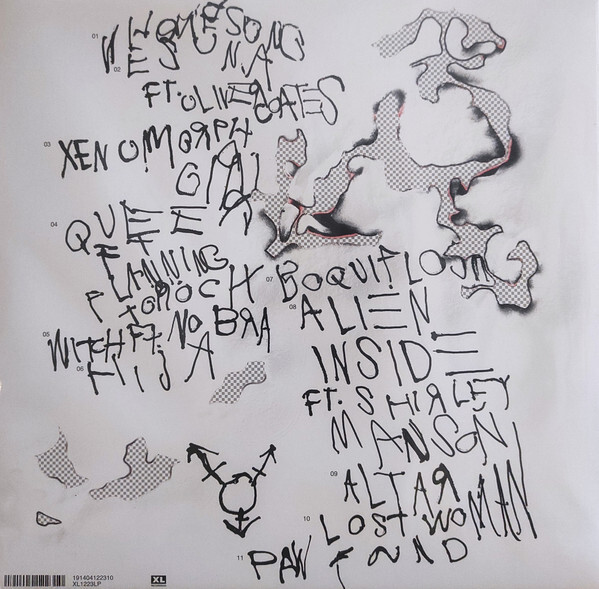 01 HOMESONG
02 VESUNA
FT. OLIVER COATES
03 XENOMORPH
GIRL
04 QUEEF
FT
PLANNING
TOROCK
05 WITCH FT. NO BRA
06 HIJA
07 BOQUIFLOJA
08 ALIEN
INSIDE
FT. SHIRLEY
MANSON
09 ALTAR
10 LOST WOMAN
FOUND
11 PAW
191404122310
XL1223LP
XL